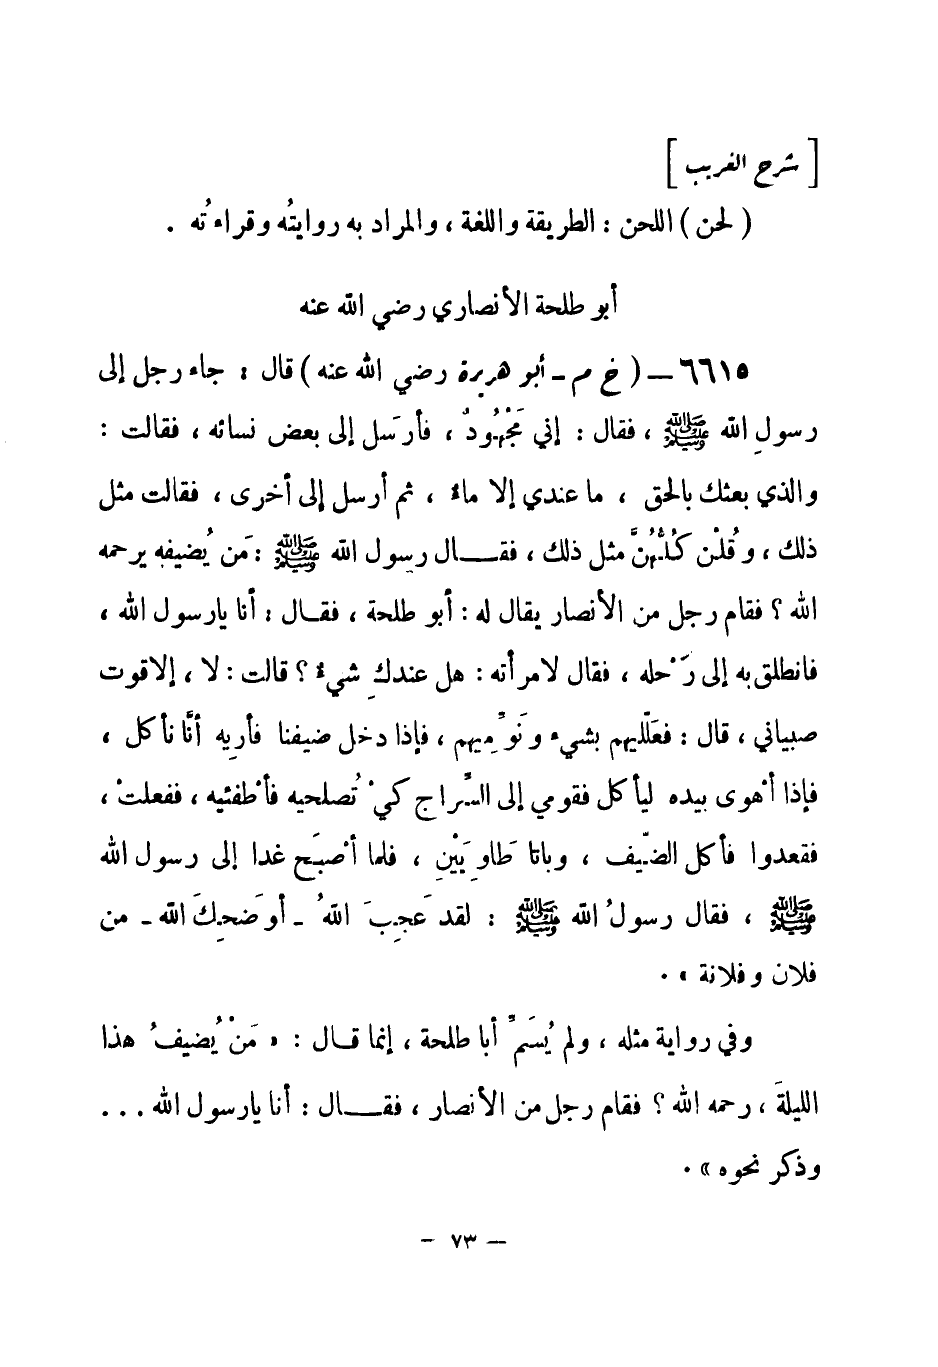 [ شرح الغريب ]
( لحن ) اللحن : الطريقة واللغة ، والمراد به روايتُه وقراءتُه .
أبو طلحة الأنصاري رضي الله عنه
٦٦١٥ – ( خ م - أبو هريرة رضي الله عنه ) قال : جاء رجل إلى
رسولِ الله ﷺ ، فقال : إني مَجْهُودٌ ، فأرَسل إلى بعض نسائه ، فقالت :
والذي بعثك بالحق ، ما عندي إلا ماءٌ ، ثم أرسل إلى أخرى ، فقالت مثل
ذلك ، وقُلْن كُلُّهُنَّ مثل ذلك ، فقـــال رسول الله ﷺ : مَن يُضيفه يرحمه
الله ؟ فقام رجل من الأنصار يقال له : أبو طلحة ، فقـال : أنا يارسول الله ،
فانطلق به إلى رَحْله ، فقال لامرأته : هل عندكِ شيءٌ ؟ قالت : لا ، إلا قوت
صبياني ، قال : فعَلّليهم بشيء ونَوِّميهم ، فإذا دخل ضيفنا فأريه أنَّا نأكل ،
فإذا أهْوى بيده ليأكل فقومي إلى السِّراج كيْ تُصلحيه فأطْفئيه ، ففعلتْ ،
فقعدوا فأكل الضّيف ، وباتا طَاوِيَيْنِ ، فلما أصْبَح غدا إلى رسول الله
ﷺ ، فقال رسولُ الله ﷺ : لقد عَجِبَ اللهُ - أو ضَحِكَ الله - من
فلان وفلانة » .
وفي رواية مثله ، ولم يُسَمِّ أبا طلحة ، إنما قـال : « مَنْ يُضيفُ هذا
الليلةَ ، رحمه الله ؟ فقام رجل من الأنصار ، فقـــال : أنا يارسول الله ...
وذكر نحوه » .
– ٧٣ –